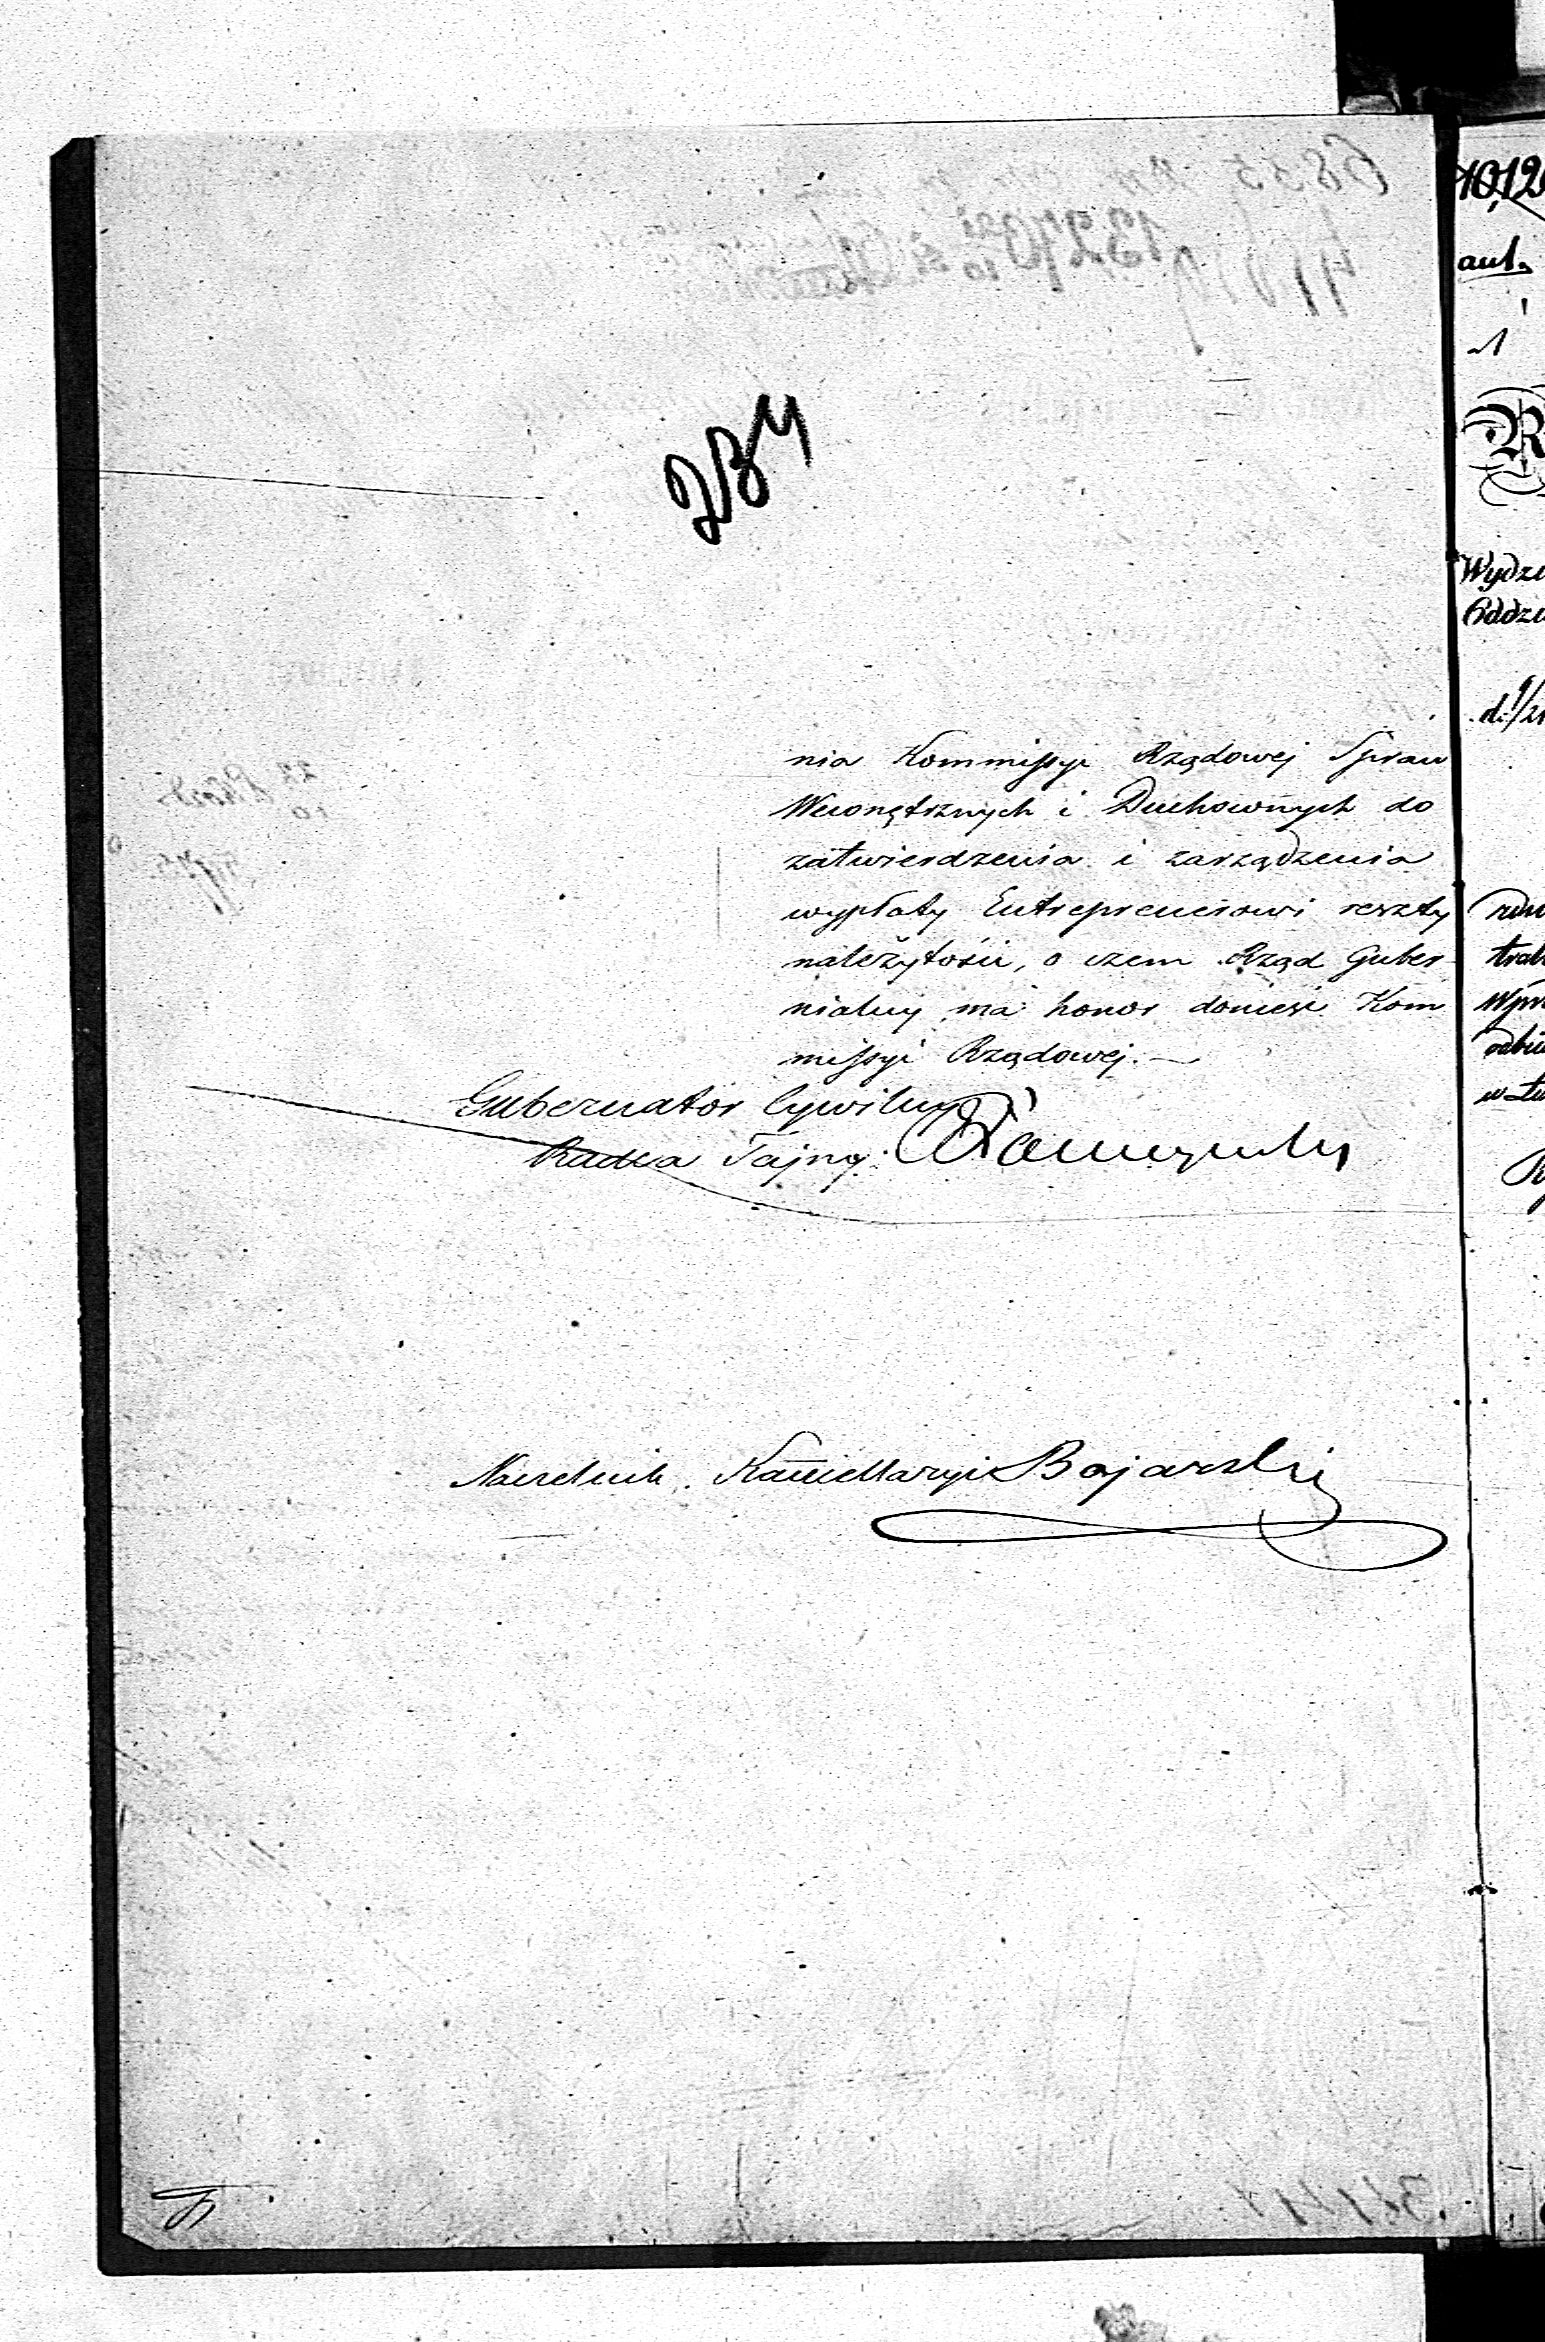 234
nia Kommissyi Rządowej Spraw
Wewnętrznych i Duchownych do
zatwierdzenia i zarządzenia
wypłaty Entreprenerowi reszty
należytości, o czem Rząd Guber-
nialny ma honor donieść Kom
missyi Rządowej. —
Gubernator Cywilny
Radca Tajny
Naczelnik Kancellaryi Bojarski
10,12
Wydzi
Oddzi